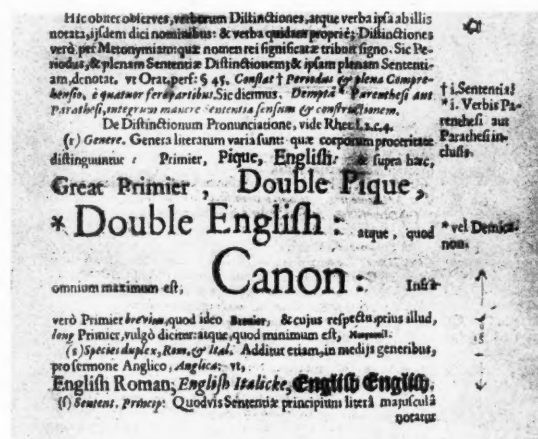 Hic obiter observes, verborum Distinctiones, atque verba ipsa ab illis
notata, ijsdem dici nominibus: & verba quidem propriè; Distinctiones
verò, per Metonymiam, quæ nomen rei significatæ tribuit signo. Sic Pe-
riodus, & plenam Sententiæ Distinctionem; & ipsam plenam Sententi-
am, denotat. vt Orat. perf: § 45. Constat † Periodus & plena Compre-
hensio, è quatuor ferè partibus. Sic dicimus. Demptâ * Parenthesi aut
Parathesi, integrum manere Sententia sensum & constructionem.
† i. Sententia!
* i. Verbis Pa-
renthesi aut
Parathesi in-
clusis.
De Distinctionum Pronunciatione, vide Rhet. l. 2. c. 4.
(r) Genere. Genera literarum varia sunt: quæ corporum proceritate
distinguuntur: Primier, Pique, English: & supra hæc,
Great Primier, Double Pique,
* Double English: atque, quod
* vel Demica-
non.
omnium maximum est, Canon: Infra
verò Primier brevier, quod ideo Brevier, & cujus respectu, prius illud,
long Primier, vulgò dicitur: atque, quod minimum est, Nonpareil.
(s) Species duplex, Rom. & Ital. Additur etiam, in medijs generibus,
pro sermone Anglico, Anglica: vt,
English Roman; English Italicke, English English.
(ſ) Sentent. Princip: Quodvis Sententiæ principium literâ majusculâ
notatur